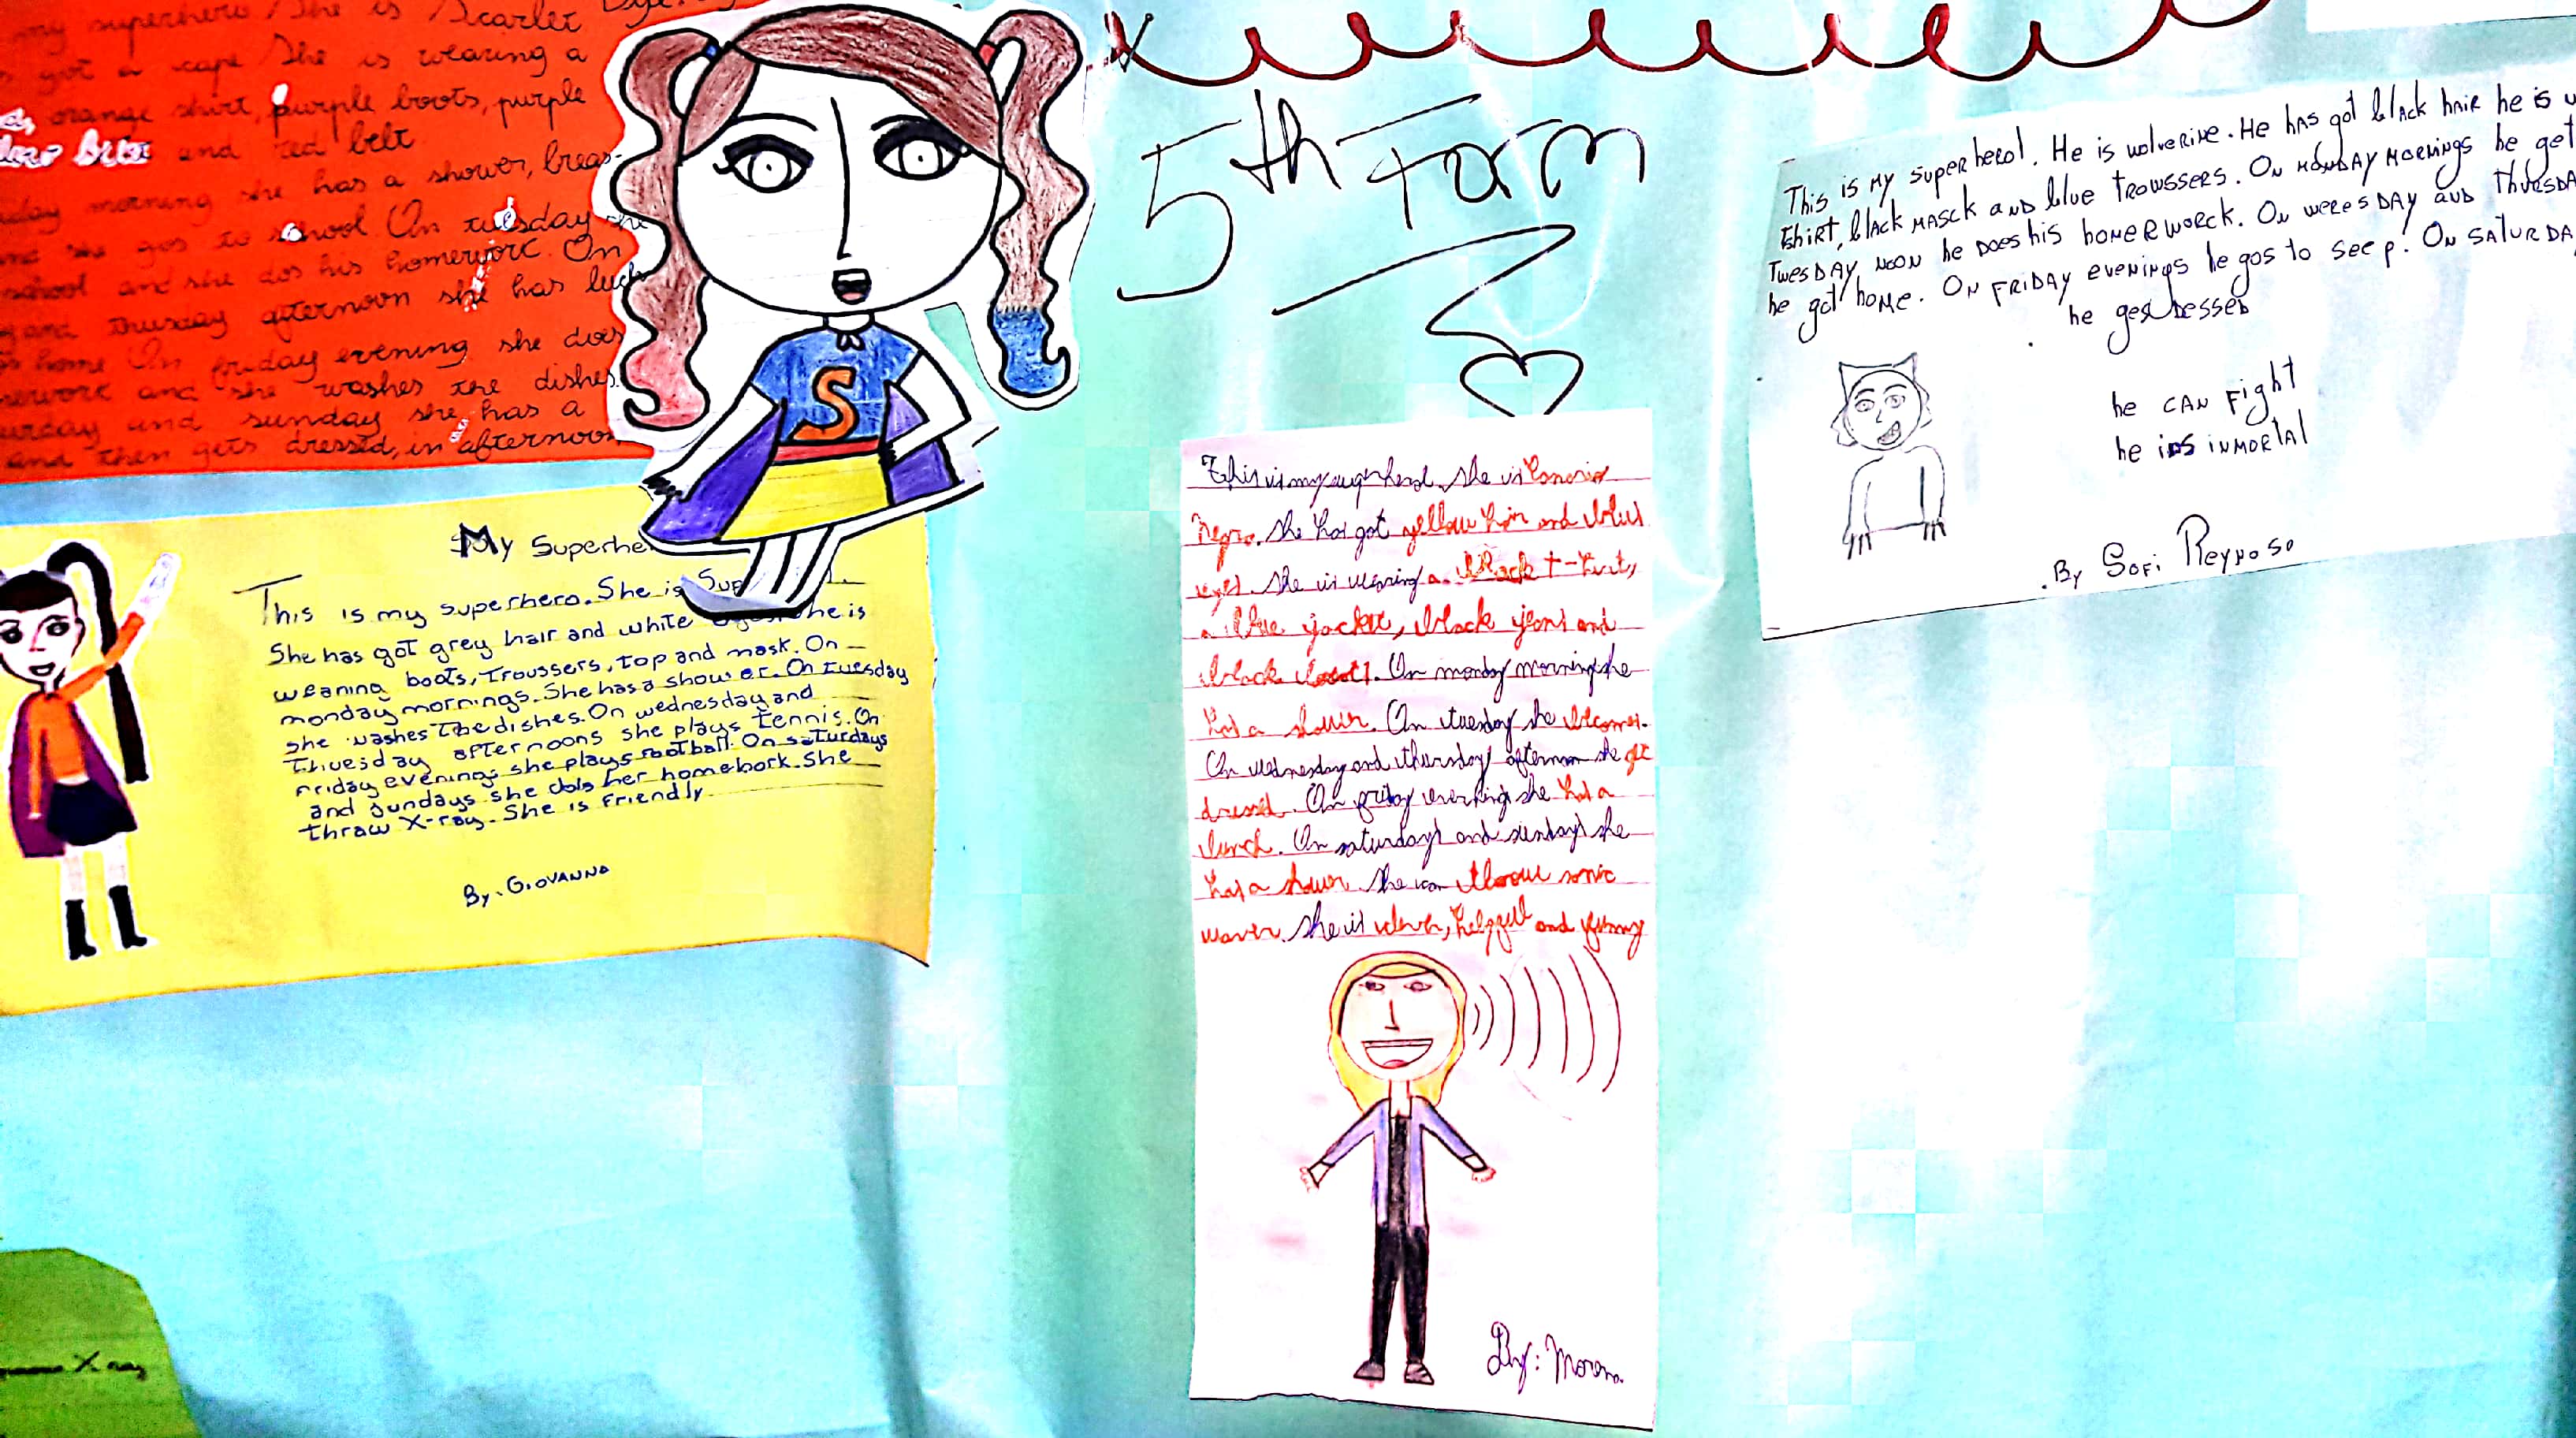 my superhero. She is Scarlet
got a cape. She is wearing a
orange shirt, purple boots, purple
and red belt.
morning she has a shower, breas-
she gos to school. On tuesday she
school and she dos his homework. On
and thusday afternoon she has luch
home. On friday evening she does
and she washes the dishes.
and sunday she has a
and then gets dressed, in afternoon
S
5th Form
My Superhe
This is my superhero. She is Sup
She has got grey hair and white She is
weaning boots, Troussers, top and mask. On
monday mornings. She has a shower. On tuesday
she washes The dishes. On wednesday and
Thuesday afternoons she plays tennis. On
Friday evenings she plays football. On saturdays
and sundays she dols her homebork. She
thraw X-ray. She is friendly
By: GIOVANNA
This is my superherol. She is Canario
Negro. She has got yellow hair and blus
eyes. She is wearing a black t-shirt,
a blue jacket, black jeans and
black boots. On monday mornings she
has a shower. On tuesday she
On wednesday and thursday afternoon she get
dressed. On friday evenings she has a
lunch. On saturdays and sundays she
has a shower. She can throw sonic
waves. She is clever, helpful and funny
By: Morena
This is MY superherol. He is wolverine. He HAS got black hair he is
tshirt, black MASCK AND blue Trowssers. On MONDAY MORNINGS he get
TWESDAY NOON he DOES his homERWORCK. ON WERESDAY AND THURSDA
he got home. ON FRIDAY evenings he gos to seep. ON SATURDA
he ges dessed
he CAN Fight
he is INMORTAL
By Sofi Reynoso
X-ray